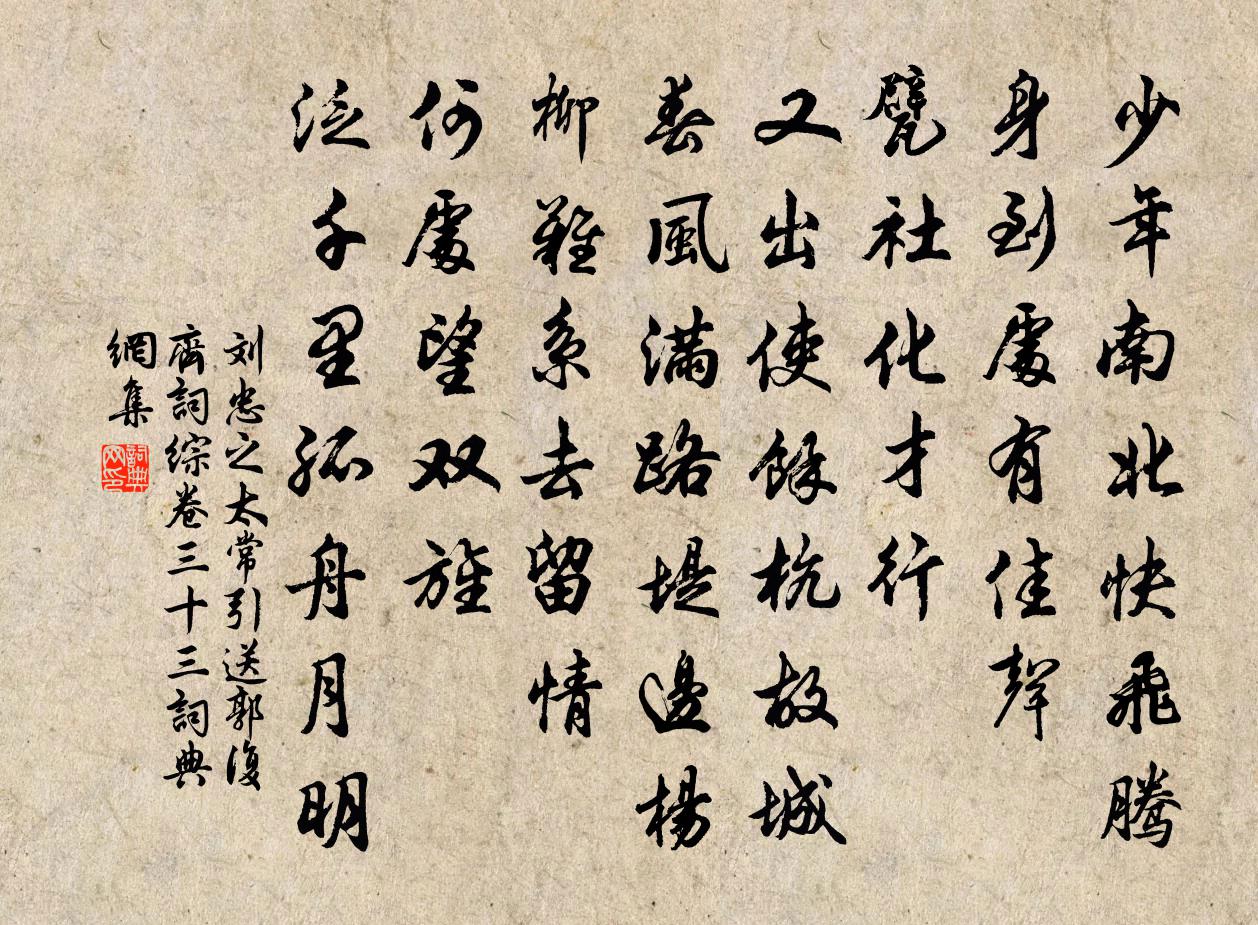 少年南北快飛騰
身到處有佳聲
甓社化才行
又出使餘杭故城
春風滿路堤邊楊
柳難系去留情
何處望双旌
泛千里孤舟月明
刘忠之太常引送郭復
齋詞综卷三十三詞典
網集
詞典
网印